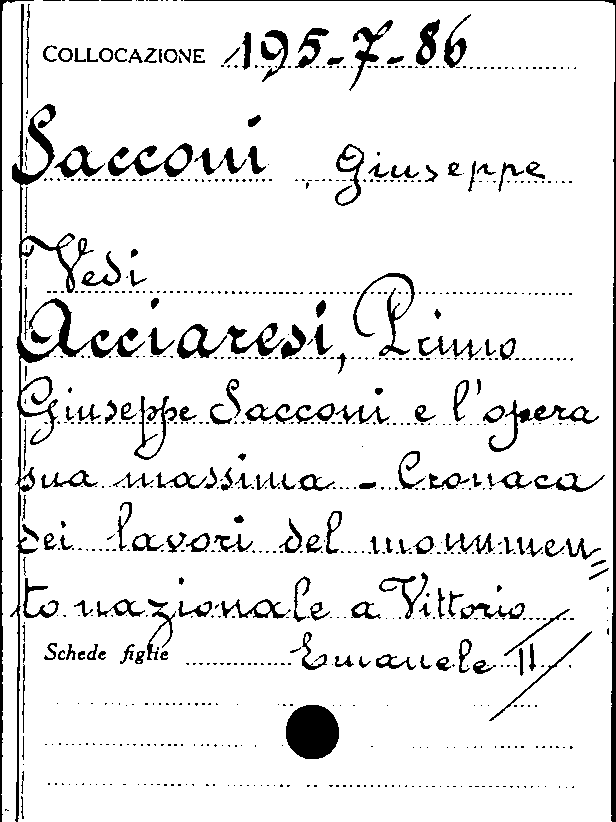 COLLOCAZIONE 195-7-86
Sacconi, Giuseppe
Vedi
Acciaresi, Primo
Giuseppe Sacconi e l'opera
sua massima - Cronaca
dei lavori del monumen=
to nazionale a Vittorio
Schede figlie Emanuele II